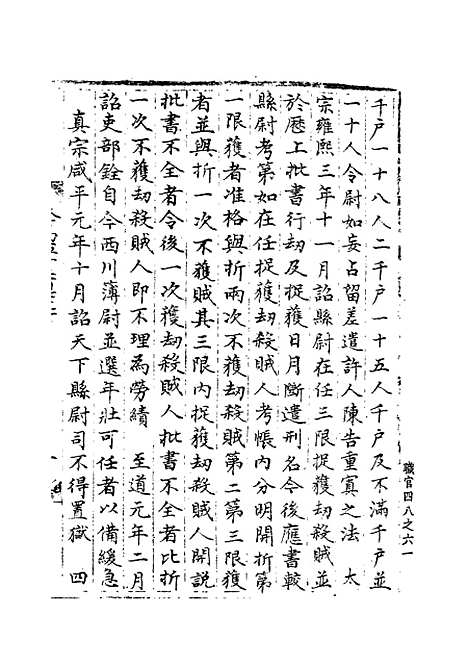 職官四八之六一
千戸一十八人二千戸一十五人千戸及不滿千戸並
一十人令尉如妄占留差遣許人陳告重寘之法　太
宗雍熙三年十一月詔縣尉在任三限捉獲劫殺賊並
於歷上批書行劫及捉獲日月斷遣刑名今後應書較
縣尉考第如在任捉獲劫殺賊人考帳內分明開折第
一限獲者准格與折兩次不獲劫殺賊第二第三限獲
者並與折一次不獲賊其三限內捉獲劫殺賊人開說
批書不全者令後一次獲劫殺賊人批書不全者比折
一次不獲劫殺賊人即不理為勞績　至道元年二月
詔吏部銓自今西川簿尉並選年壯可任者以備緩急
真宗咸平元年十月詔天下縣尉司不得置獄　四